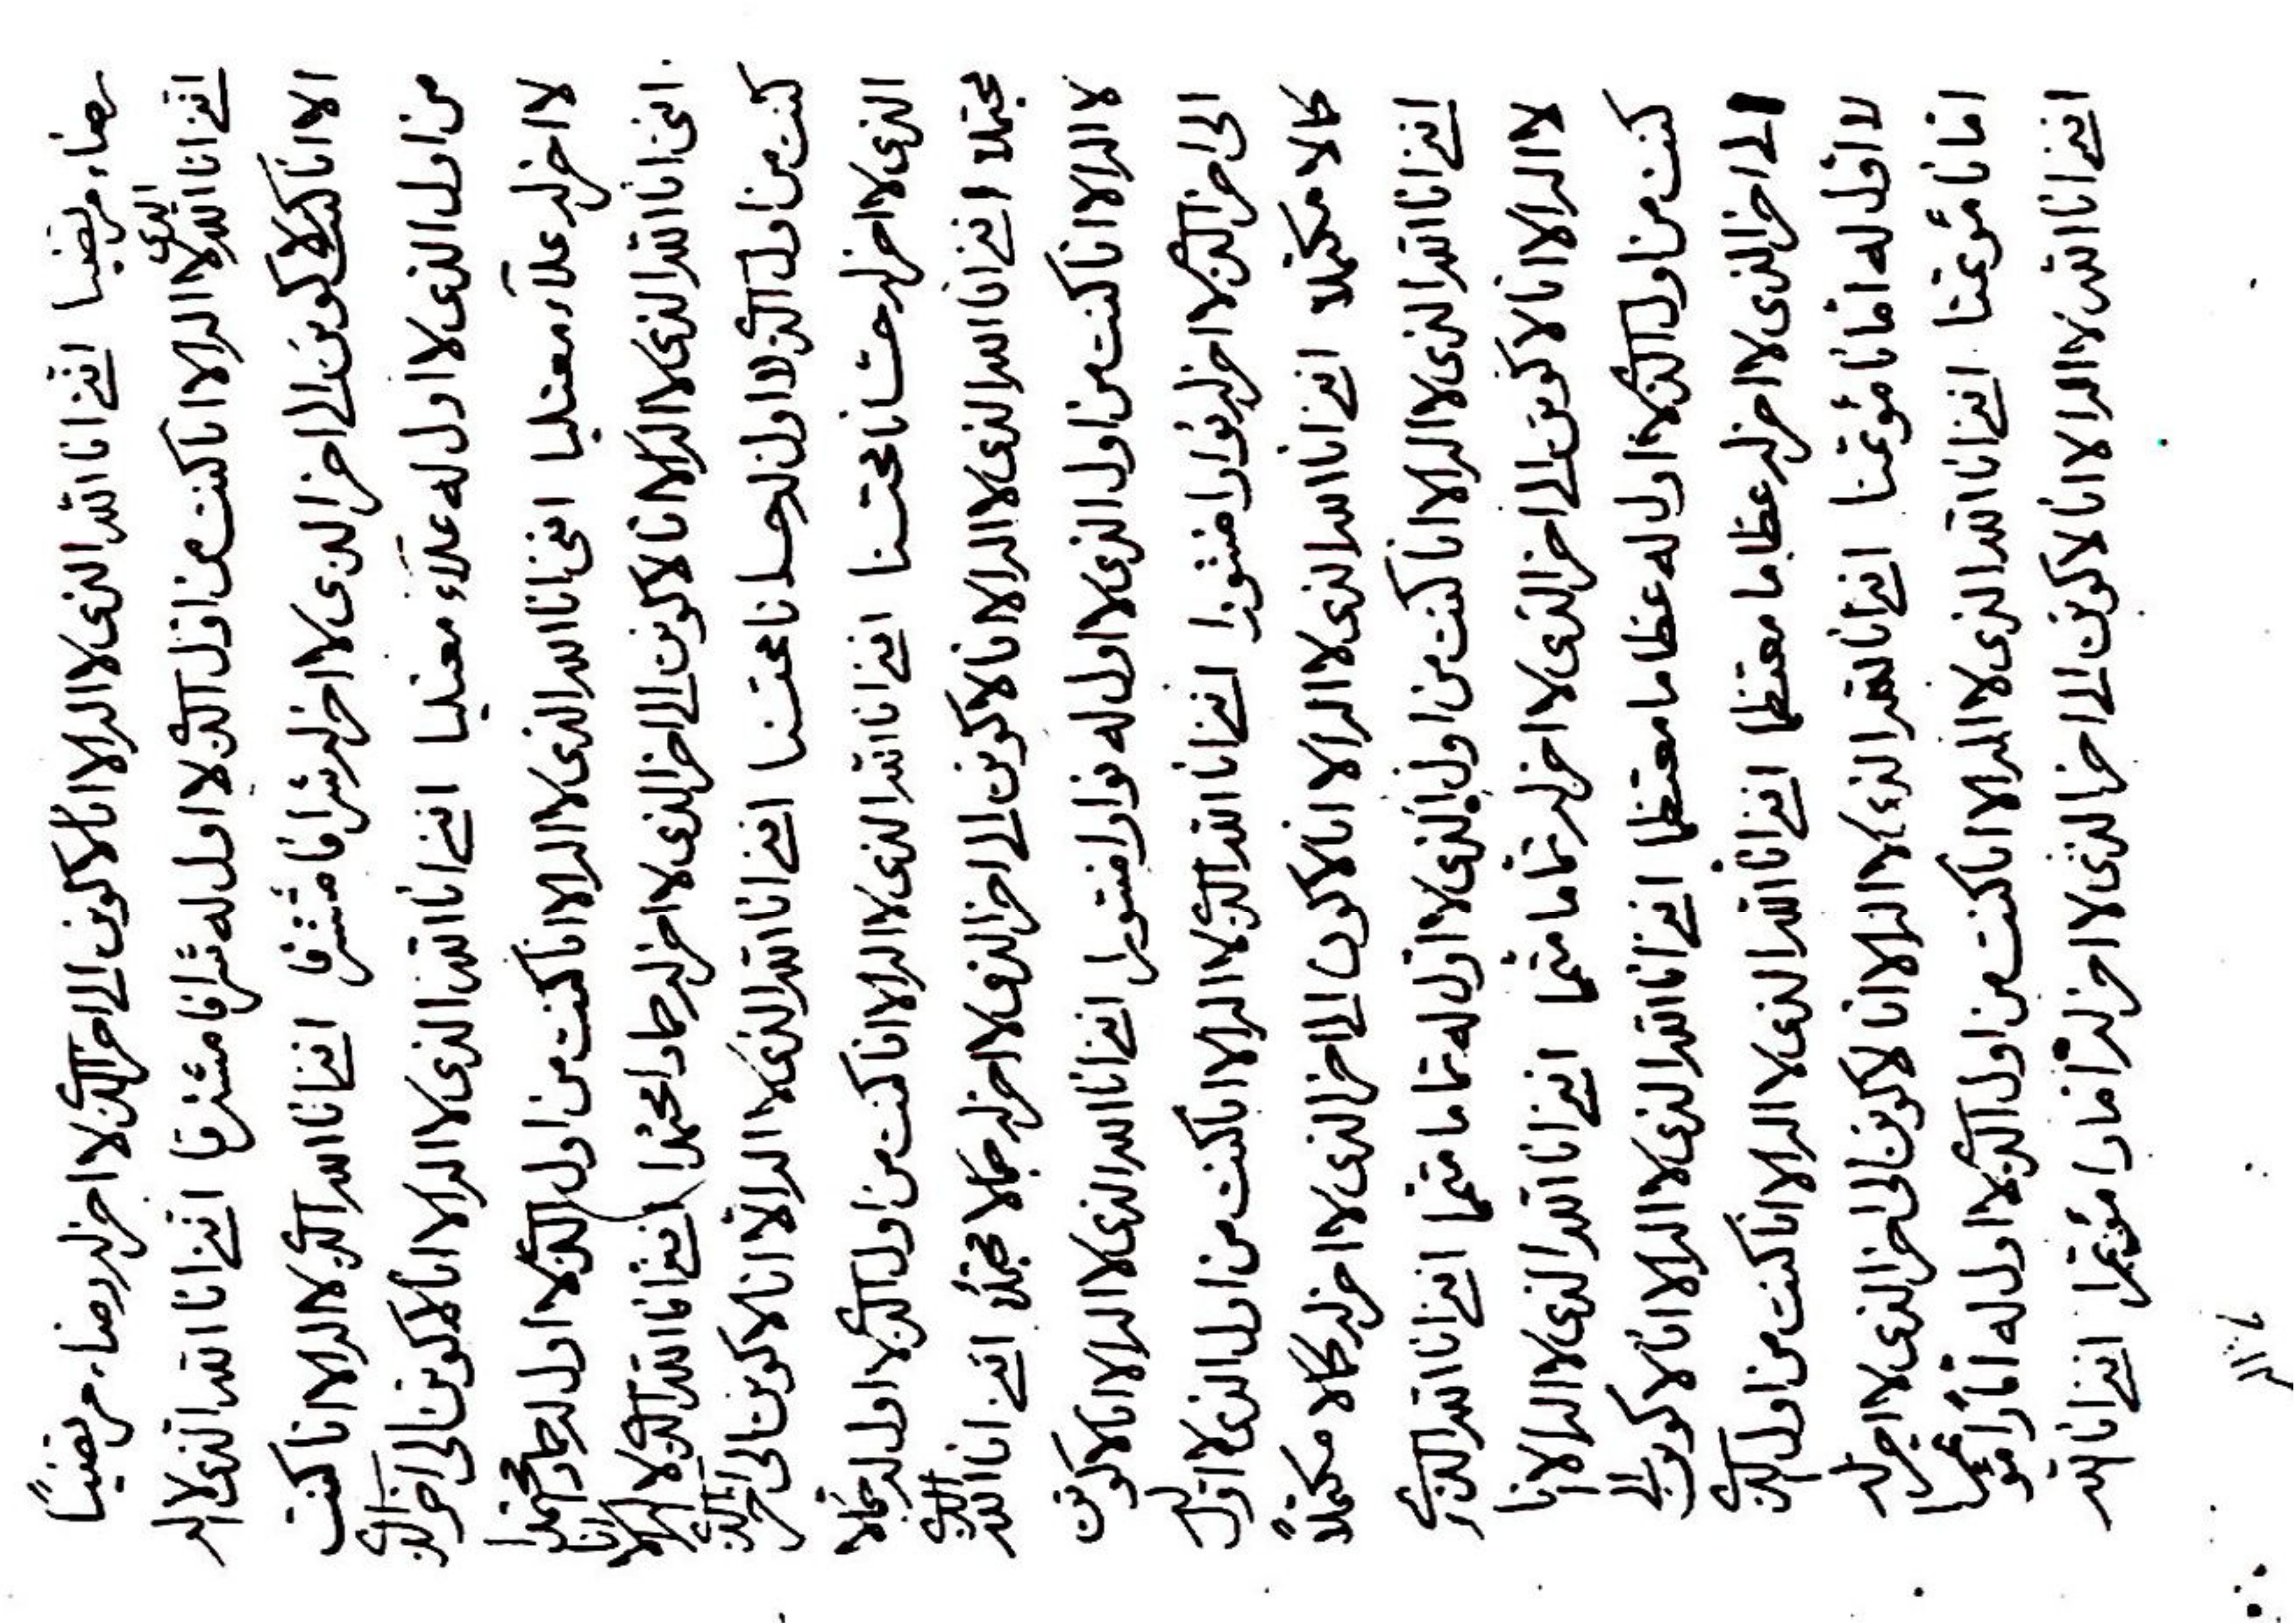 رضاء مرتضيا اننى انا الله الذى لا اله الا انا لاكونن الى اخر الذى لا اخر له رضاء مرتضيا
اننى انا الله الذى لا اله الا انا كنت من اول الذى لا اول له شرافا مشترفا اننى انا الله الذى لا اله
الا انا لاكونن الى اخر الذى لا اخر له شرافا مشترفا اننى انا الله الذى لا اله الا انا كنت
من اول الذى لا اول له علاء معتليا اننى انا الله الذى لا اله الا انا لاكونن الى اخر الذى
لا اخر له علاء معتليا اننى انا الله الذى لا اله الا انا كنت من اول الذى لا اول له حمادا محتمدا
اننى انا الله الذى لا اله الا انا لاكونن الى اخر الذى لا اخر له حمادا محتمدا اننى انا الله الذى لا اله الا انا
كنت من اول الذى لا اول له حسانا محتسنا اننى انا الله الذى لا اله الا انا لاكونن الى اخر الذى
الذى لا اخر له حسانا محتسنا اننى انا الله الذى لا اله الا انا كنت من اول الذى لا اول له جمالا
مجتملا اننى انا الله الذى لا اله الا انا لاكونن الى اخر الذى لا اخر له جمالا مجتملا اننى انا الله الذى
لا اله الا انا كنت من اول الذى لا اول له نوارا منتورا اننى انا الله الذى لا اله الا انا لاكونن
الى اخر الذى لا اخر له نوارا منتورا اننى انا الله الذى لا اله الا انا كنت من اول الذى لا اول له
كمالا مكتملا اننى انا الله الذى لا اله الا انا لاكونن الى اخر الذى لا اخر له كمالا مكتملا
اننى انا الله الذى لا اله الا انا كنت من اول الذى لا اول له تماما متتما اننى انا الله الذى
لا اله الا انا لاكونن الى اخر الذى لا اخر له تماما متتما اننى انا الله الذى لا اله الا انا
كنت من اول الذى لا اول له عظاما معتظما اننى انا الله الذى لا اله الا انا لاكونن الى
الى اخر الذى لا اخر له عظاما معتظما اننى انا الله الذى لا اله الا انا كنت من اول الذى
لا اول له امانا مؤتمنا اننى انا الله الذى لا اله الا انا لاكونن الى اخر الذى لا اخر له
امانا مؤتمنا اننى انا الله الذى لا اله الا انا كنت من اول الذى لا اول له امارا مؤتمرا
اننى انا الله لا اله الا انا لاكونن الى اخر الذى لا اخر له امارا مؤتمرا اننى انا الله